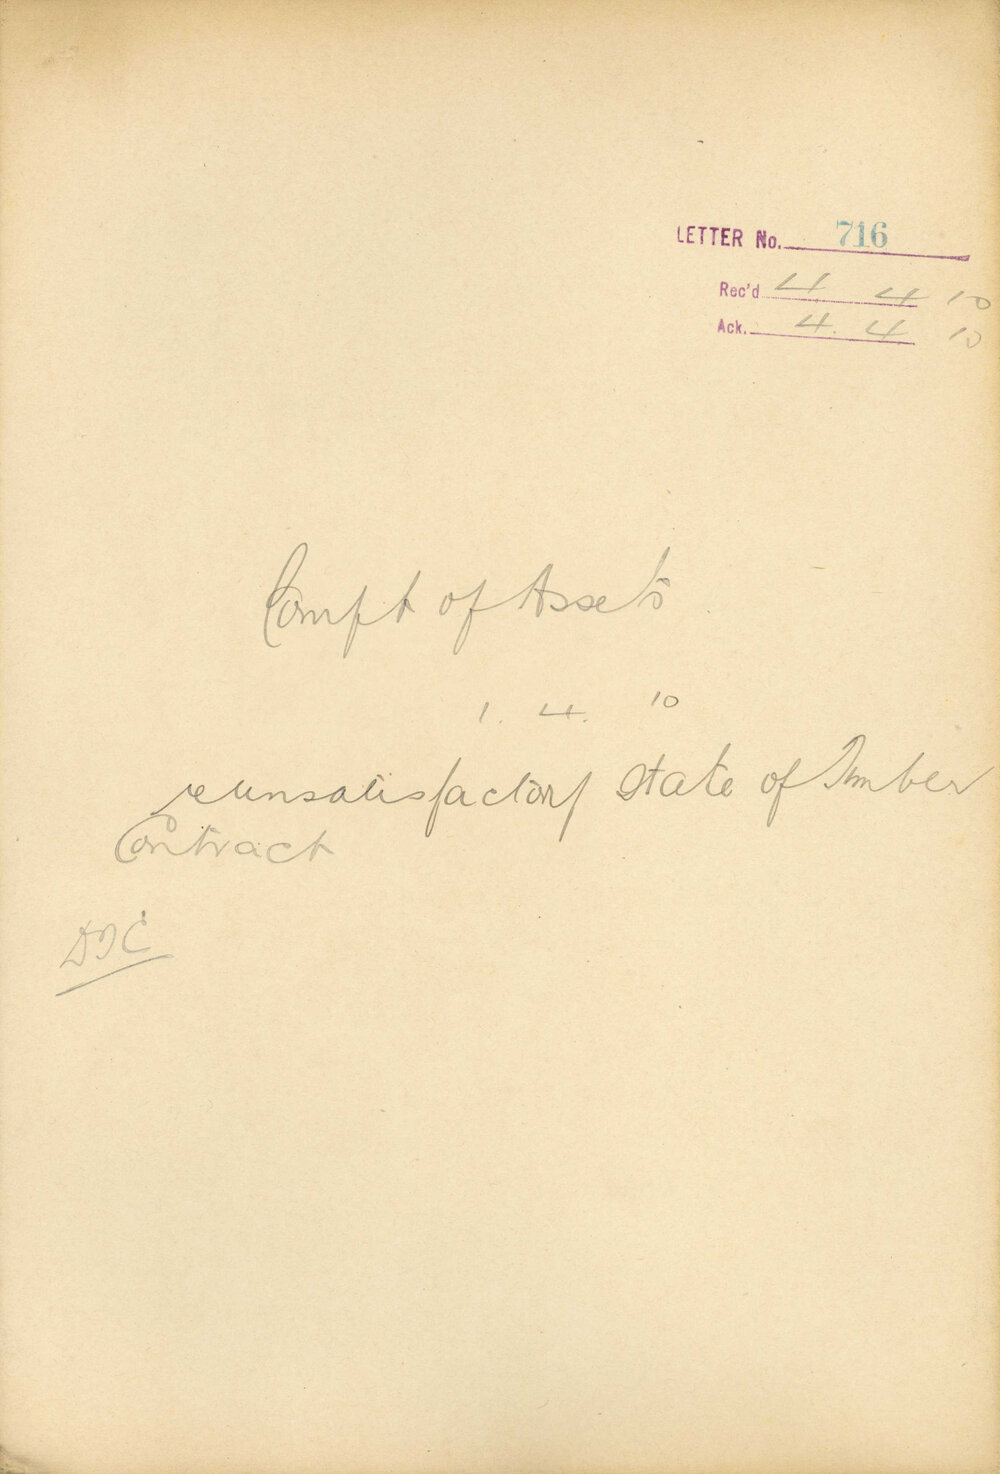 LETTER No. 716
Rec'd 4. 4 10
Ack. 4. 4. 10
Compt of Assets
1. 4. 10
re unsatisfactory State of Timber
Contract